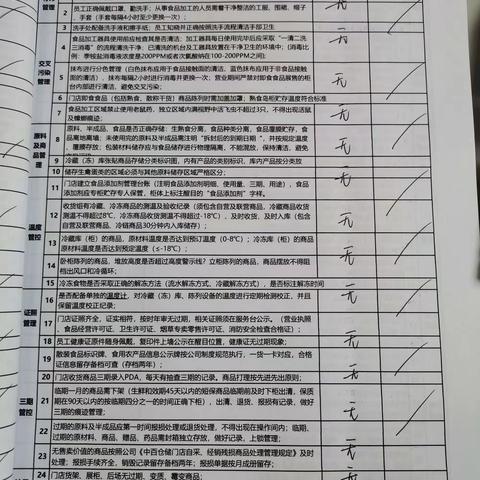 管理
2 员工正确佩戴口罩、勤洗手；从事食品加工的人员需着干净整洁的工服、围裙、帽子、手套（手套每隔4小时至少更换一次）；
3 洗手处配备洗手液和擦手纸；员工知晓并正确按照洗手流程清洁手部卫生
交叉污染管理
4 食品加工器具使用前应检查其是否清洁、加工器具每日使用完毕后应采取“一清二洗三消毒”的流程清洗干净；已清洗的机台及工器具放置在干净卫生的环境中；(消毒比例：季铵盐消毒液浓度是200PPM或者次氯酸钠在100-200PPM之间);
无
5 抹布进行分色管理（白色抹布应用于食品接触面的清洁，蓝色抹布应用于非食品接触面的清洁），抹布每隔2小时进行消毒并更换一次；营业期间严禁对即食食品展售的柜台内部进行清洁，避免交叉污染；
无
6 门店即食食品（包括熟食、散称干货）商品陈列时需加盖加罩；熟食岛柜贮存温度符合标准
7 食品加工区域禁止使用老鼠药、独立区域内满视野中活飞虫不超过3只，不得出现活鼠及蟑螂痕迹；
无
原料及商品管理
8 原料、半成品、食品是否正确存储：生熟食分离，食品种类分离，食品覆膜贮存、食品离地离墙；未使用完的原料及半成品需注明“拆封后的到期日期”，并按规定温度覆膜存放；包装材料储存应与食品储存进行物理隔离，不能混放，保持清洁，避免
无
9 冷藏（冻）库张贴商品存储分类标识图，内有产品的类别标识、库内产品按分类放
10 储存生禽蛋类的区域必须与其他原料储存区域严格区分；
11 门店建立食品添加剂管理台账（注明食品添加剂明细、使用量、三期、用途），食品添加剂应专柜贮存专人保管，柜体上标注醒目的“食品添加剂”字样。
无
温度管控
12 收货组有冷藏、冷冻商品的测温及验收纪录（须包含自营及联营商品，冷藏商品收货测温不得超过8℃，冷冻商品收货测温不得超过-18℃），及时收货、及时入库（包含自营及联营商品，冷链商品30分钟内入库储存）；
无
13 冷藏库（柜）的商品，原材料温度是否达到预订温度（0-8℃）；冷冻库（柜）的商品原材料温度是否达到预定温度（≤-18℃）；
无
14 卧柜陈列的商品，堆放高度是否超过高度警示线？立柜陈列的商品，商品摆放不得阻档出风口和冷循环；
无
15 冷冻食物是否采取正确的解冻方法（流水解冻方式、冷藏解冻方式），是否标注解冻时间
16 是否配备单独的温度计，对冷藏（冻）库、陈列设备的温度进行定期检测校正，并且保留温度校正纪录；
无
证照管理
17 门店证照齐全，证实相符，按时年审无过期，相关证照须在服务台公示。（营业执照、食品经营许可证、卫生许可证、烟草专卖零售许可证、消防安全检查合格证）；
无
18 员工健康证原件随身佩戴，复印件上墙公示在醒目位置，健康证无过期现象；
19 散装食品标识牌、食用农产品信息公示牌按公司制度规范执行，一货一卡对应，合格证信息留存备档可查（存档两年）；
无
三期管控
20 门店收货商品三期录入PDA，每天有抽查三期的记录。商品打理按先进先出原则；
无
21 临期一月的商品需下架（生鲜和效期45天以内的短保商品临期前及时下柜出清，保质期在90天以内的按临期四分之一的时间正确下柜），出清、退货、报损有记录，做好三期的痕迹管理；
无
22 过期的原料及半成品应第一时间报损处理或退货处理，不得出现在操作间内；临期、过期的原材料、商品、赠品、药品需封箱独立存放，做好记录，上锁管理；
无
23 无售卖价值的商品按照公司《中百仓储门店自采、经销残损商品处理管理规定》及时处理；报损手续齐全、销毁记录留存备档两年；报损单据按月成册留存；
无
24 门店货架、展柜、后场无过期、变质、霉变商品；
无